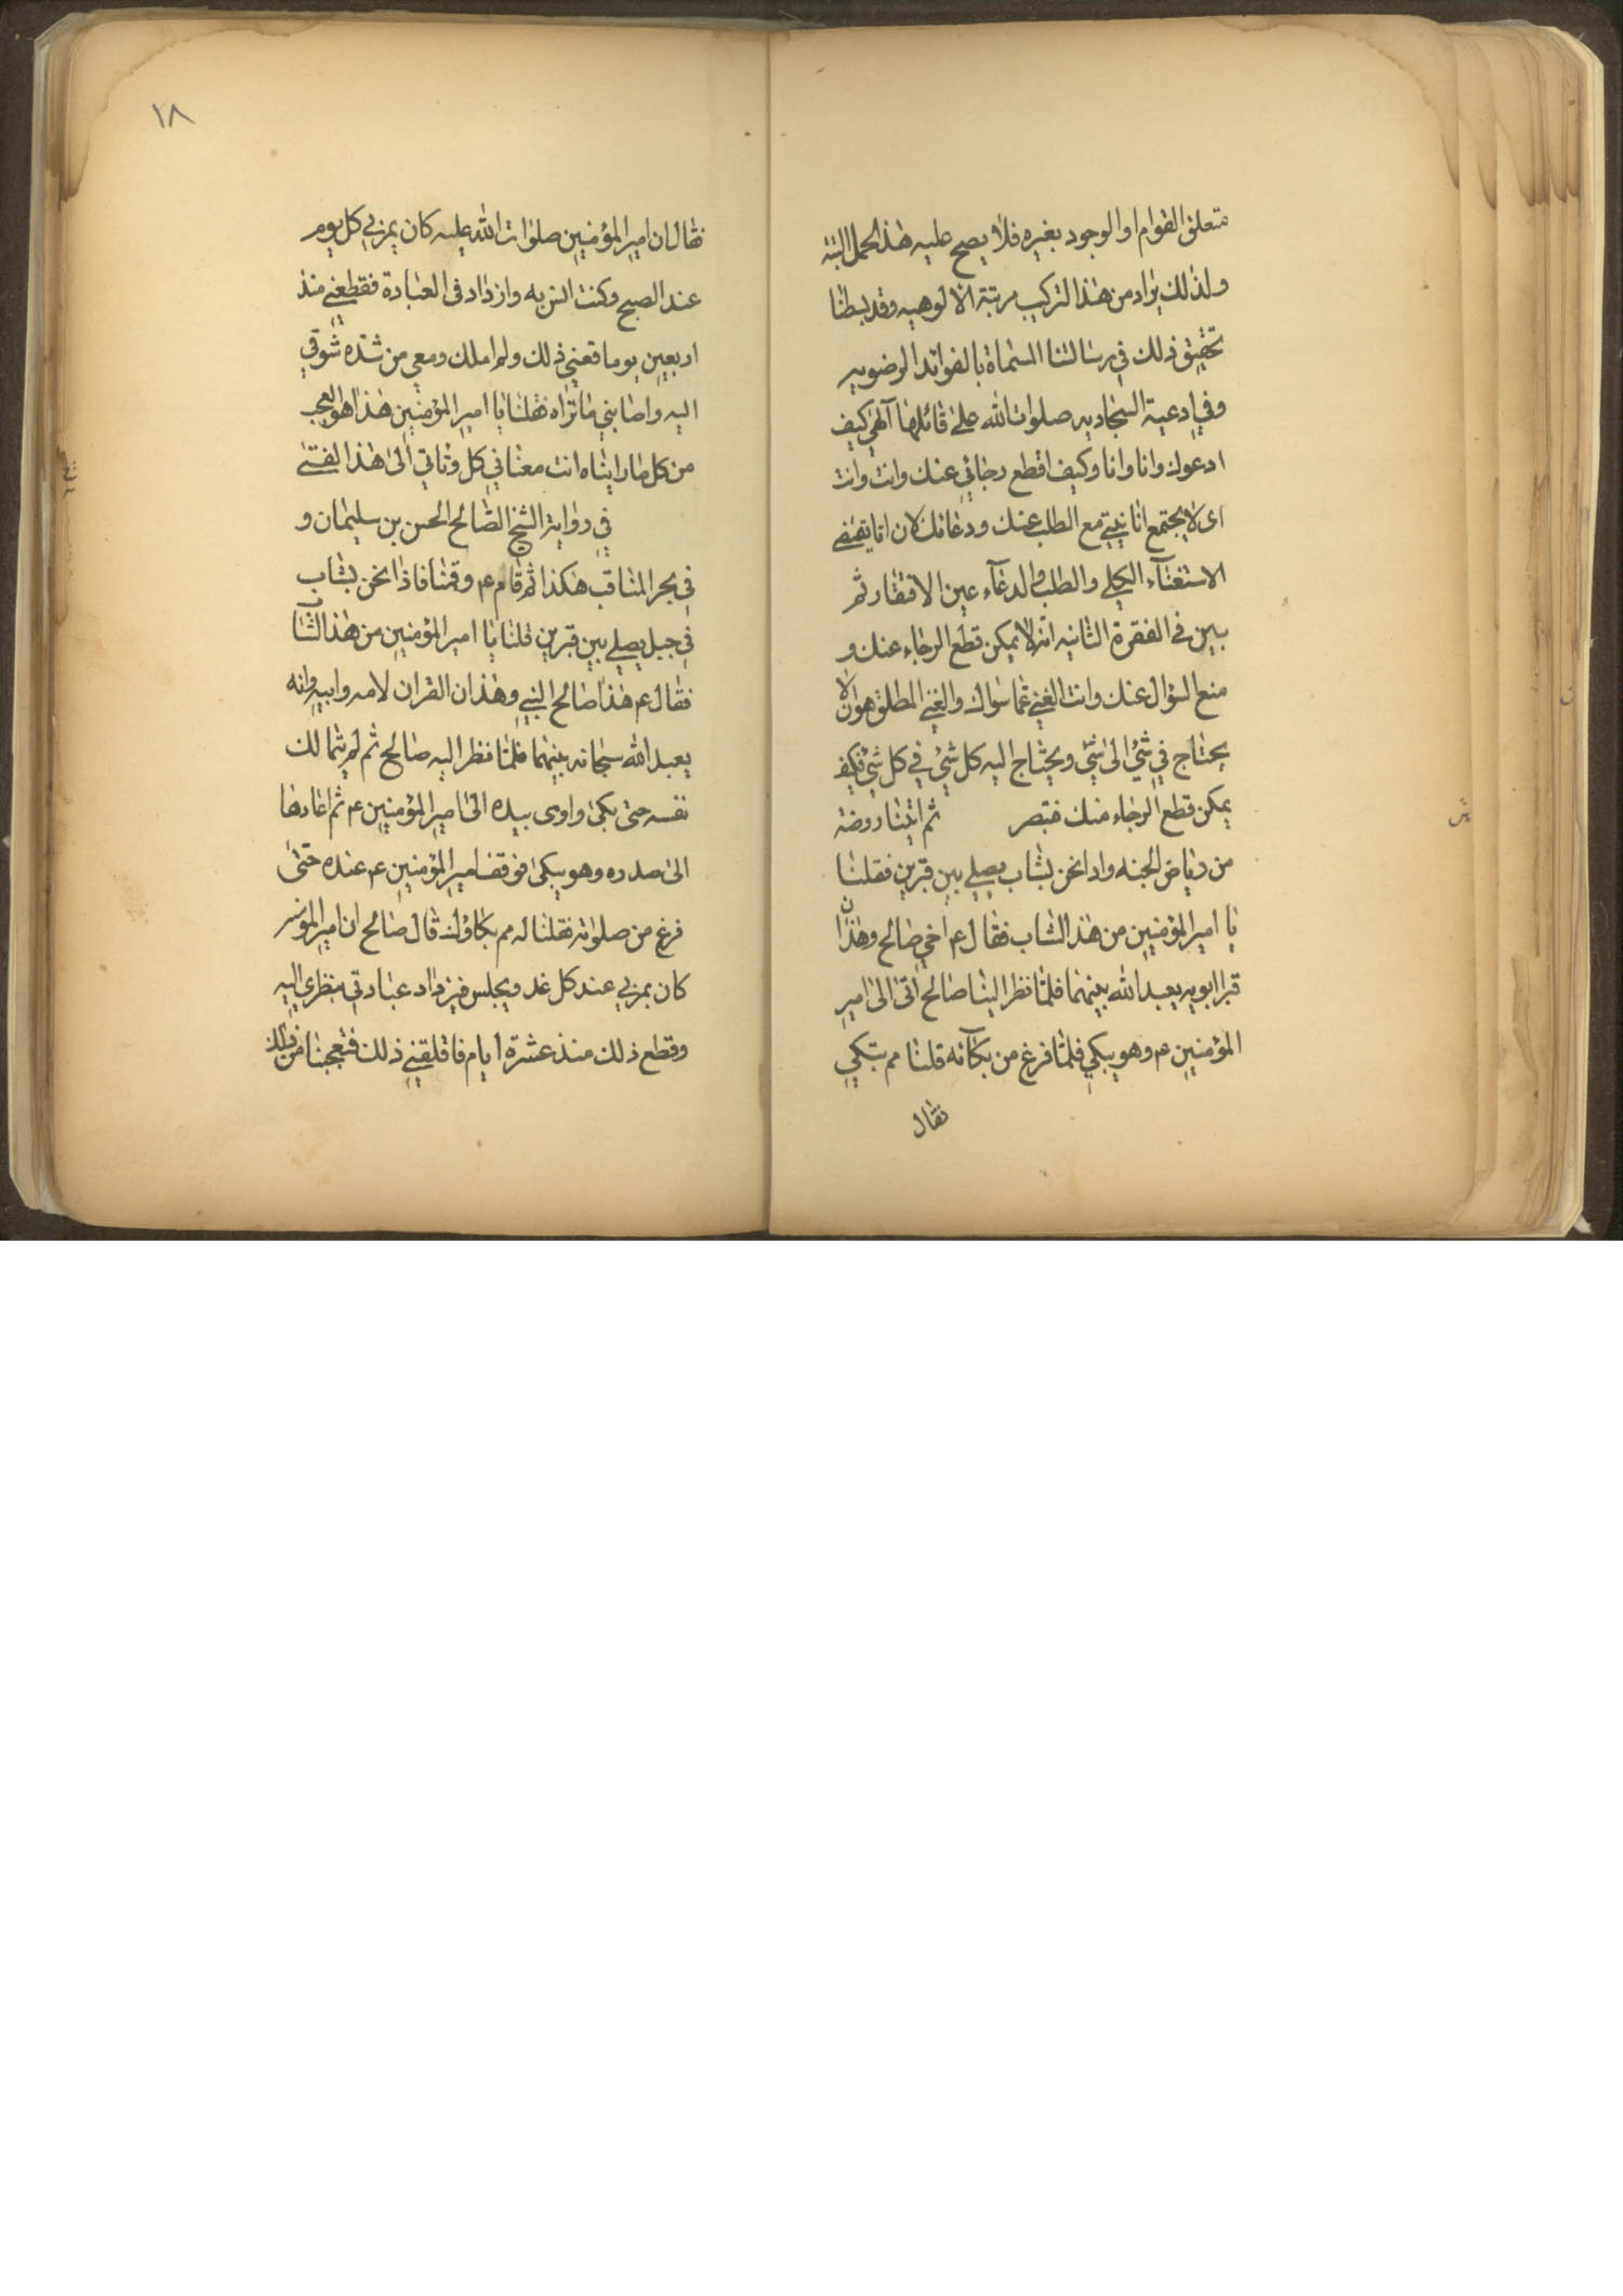 متعلق القوام او الوجود بغيره فلا يصح عليه هذا الحمل البتة
ولذلك يراد من هذا التركيب مرتبة الالوهيه وقد بسطنا
تحقيق ذلك في رسالتنا المسماة بالفوائد الرضويه
وفي ادعية السجاديه صلوات الله على قائلها آلهي كيف
ادعوك وانا وانا وكيف اقطع رجائي عنك وانت وانت
اى لا يجتمع انانيتي مع الطلب عنك ودعائك لان انا يقتضى
الاستغنآء الكلي والطلب والدعآء عين الافتقار ثم
بين في الفقرة الثانيه انه لا يمكن قطع الرجاء عنك و
منع السؤال عنك وانت الغني عما سواك والغني المطلق هو ان لا
يحتاج في شئ الى شئ ويحتاج اليه كل شئ في كل شئ فكيف
يمكن قطع الرجاء منك فتبصر ثم اتينا روضة
من رياض الجنه واذا نحن بشاب يصلي بين قبرين فقلنا
يا امير المؤمنين من هذا الشاب فقال ع اخي صالح وهذان
قبرا ابويه يعبد الله بينهما فلما نظر الينا صالح اتى الى امير
المؤمنين ع وهو يبكي فلما فرغ من بكآئه قلنا مم تبكي
فقال
١٨
فقال ان امير المؤمنين صلوات الله عليه كان يمر بي كل يوم
عند الصبح وكنت انس به وازداد في العبادة فقطعني منذ
اربعين يوما فغمني ذلك ولم املك دمعي من شدة شوقي
اليه واصابني ما تراه فقلنا يا امير المؤمنين هذا هو العجب
من كل ما رايناه انت معنا في كل وتأتي الى هذا الفتى
في رواية الشيخ الصالح الحسن بن سليمان و
في بحر المناقب هكذا ثم قام ع وقمنا فاذا نحن بشاب
في جبل يصلي بين قبرين قلنا يا امير المؤمنين من هذا الشاب
فقال ع هذا صالح النبي وهذان القبران لامه وابيه وانه
يعبد الله سبحانه بينهما فلما نظر اليه صالح ثم لم يتمالك
نفسه حتى بكى واوى بيده الى امير المؤمنين ع ثم اعادها
الى صدره وهو يبكى فوقف امير المؤمنين ع عنده حتى
فرغ من صلواته فقلنا له مم بكاؤك قال صالح ان امير المؤمنين
كان يمر بي عند كل غد ويجلس فيزداد عبادتي بنظري اليه
وقطع ذلك منذ عشرة ايام فاقلقني ذلك فتعجبنا من ذلك